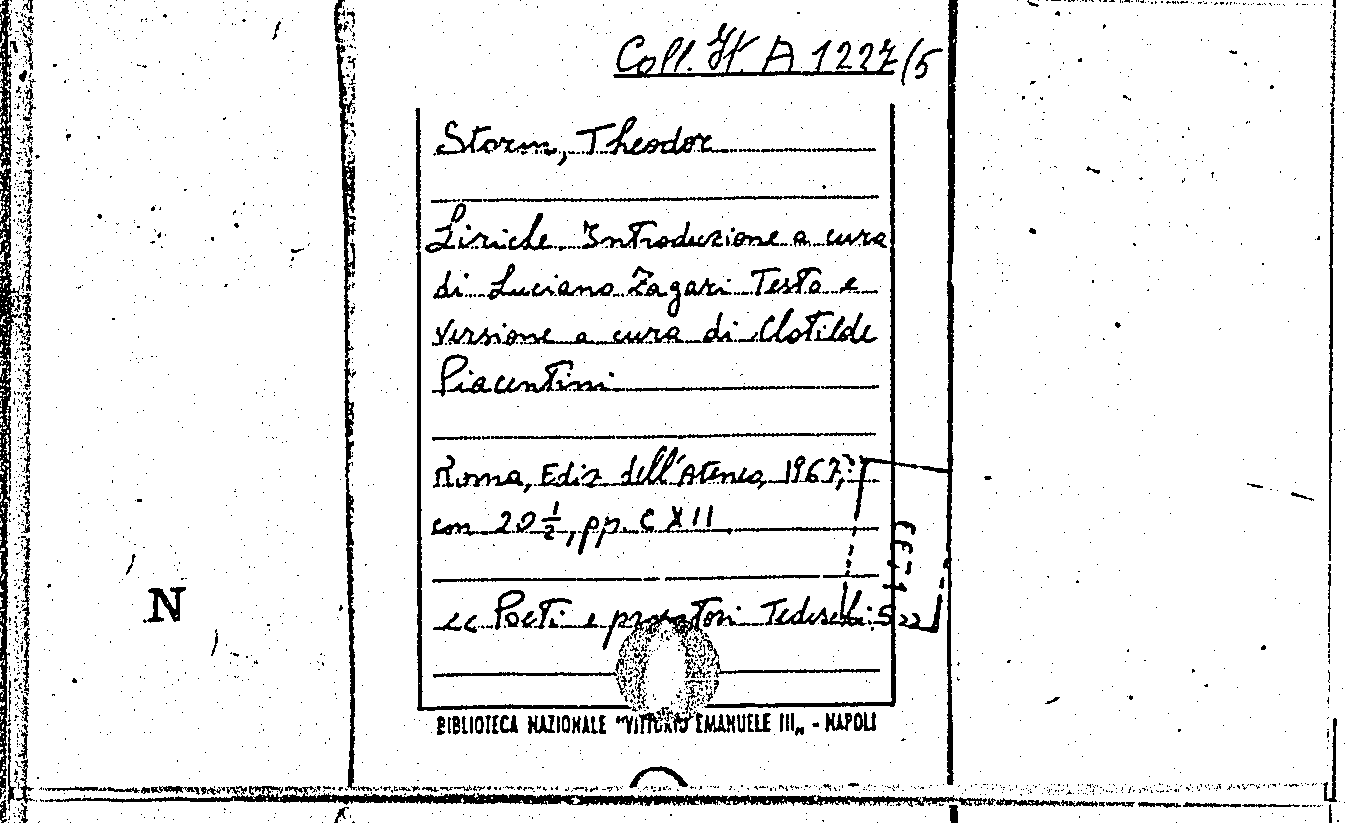 Coll. It. A 1227/5
Storm, Theodor
Liriche. Introduzione a cura
di Luciano Zagari Testo e
versione a cura di Clotilde
Piacentini
Roma, Ediz dell'Ateneo, 1967,
cm 20 ½, pp. CXII
N
<< Poeti e prosatori Tedeschi 5 >>
BIBLIOTECA NAZIONALE "VITTORIO EMANUELE III„ - NAPOLI